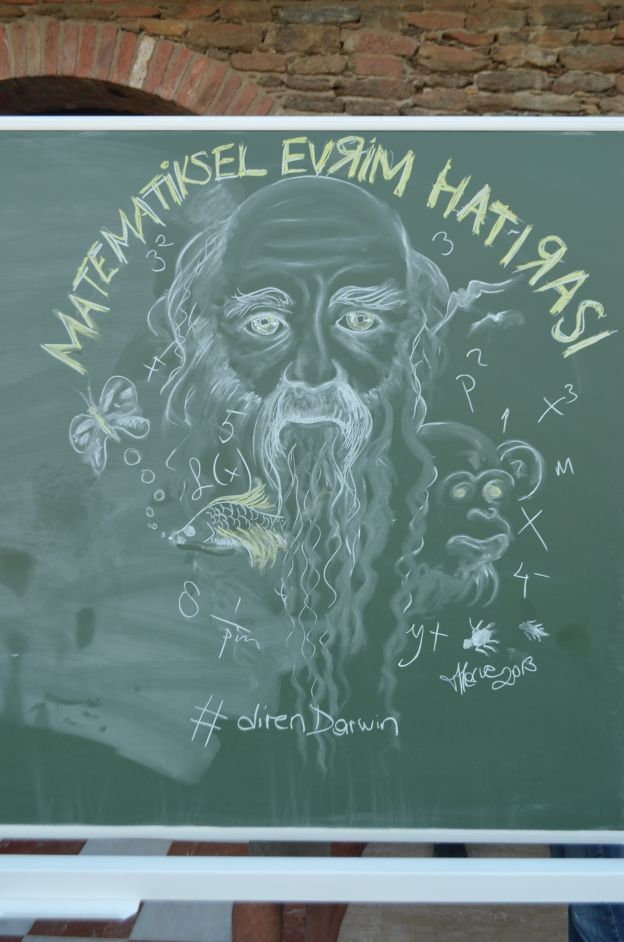 MATEMATİKSEL EVRİM HATIRASI
3²
3
x
2
P
1
x³
5
f(x)
M
X
4-
8
1/pm
y+
Merve 2013
#direnDarwin